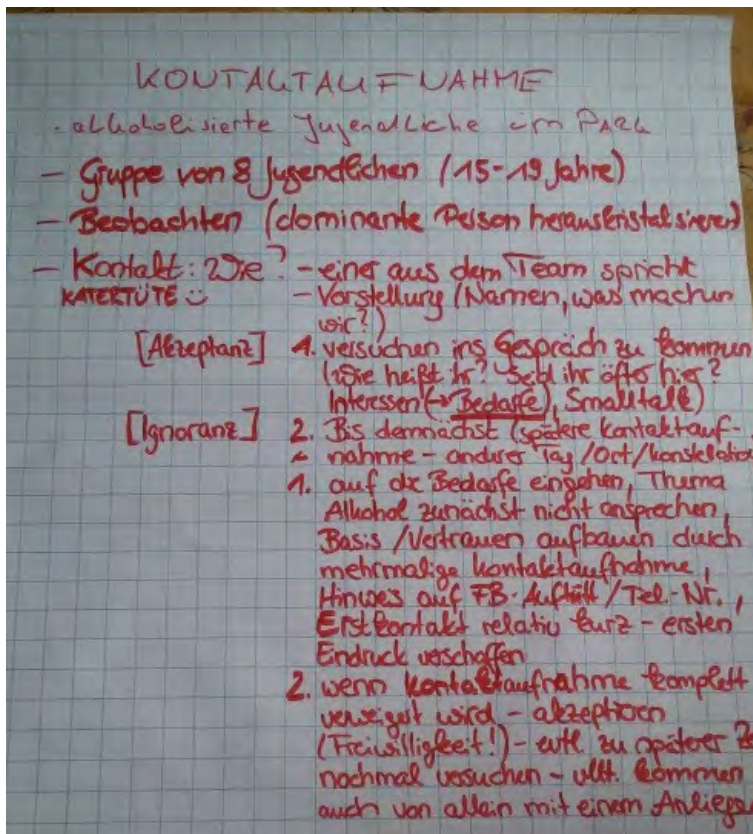 KONTAKTAUFNAHME
- alkoholisierte Jugendliche im PARK
- Gruppe von 8 Jugendlichen (15-19 Jahre)
- Beobachten (dominante Person herauskristalisieren)
- Kontakt: Wie? - einer aus dem Team spricht
KATERTÜTE - Vorstellung (Namen, was machen
wir?)
[Akzeptanz] 1. versuchen ins Gespräch zu kommen
(Wie heißt ihr? Seid ihr öfter hier?
Interessen (→ Bedarfe), Smalltalk)
[Ignoranz] 2. Bis demnächst (spätere Kontaktauf-
nahme - anderer Tag/Ort/Konstelation
1. auf die Bedarfe eingehen, Thema
Alkohol zunächst nicht ansprechen,
Basis/Vertrauen aufbauen durch
mehrmalige Kontaktaufnahme,
Hinweis auf FB-Auftritt/Tel.-Nr.,
Erstkontakt relativ kurz - ersten
Eindruck verschaffen
2. wenn Kontaktaufnahme komplett
verweigert wird - akzeptieren
(Freiwilligkeit!) - evtl. zu späterer
nochmal versuchen - vllt. kommen
auch von allein mit einem Anliegen